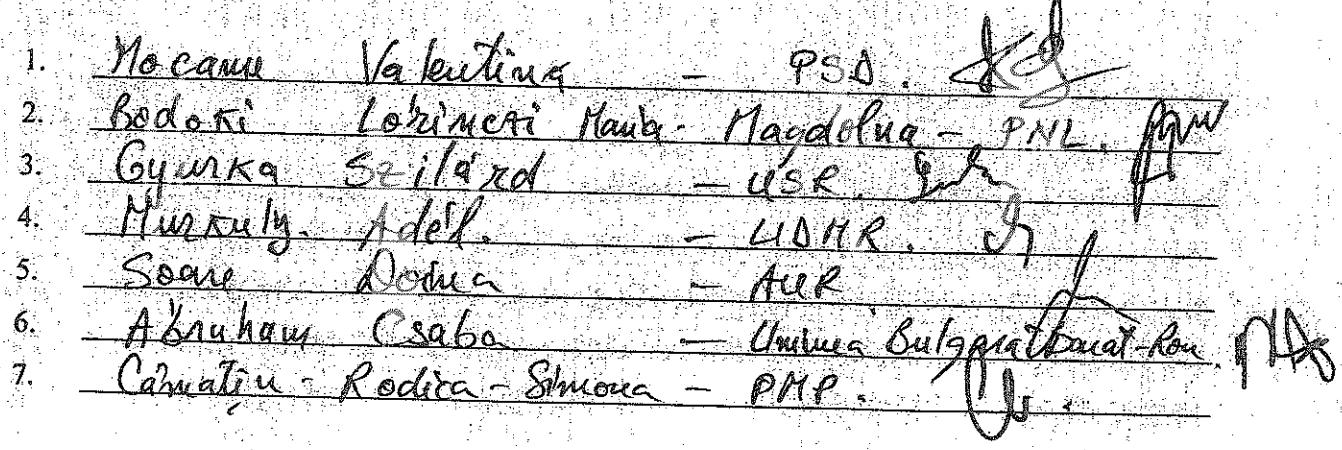 1. Mocanu Valentina - PSD.
2. Bodoki Lőrinczi Maria-Magdolna - PNL.
3. Gyurka Szilárd - USR.
4. Murkuly. Adél. - UDMR.
5. Soare Doina - AUR
6. Abraham Csaba - Uniunea Bulgară Banat-Rom.
7. Cărnațiu - Rodica - Simona - PMP.